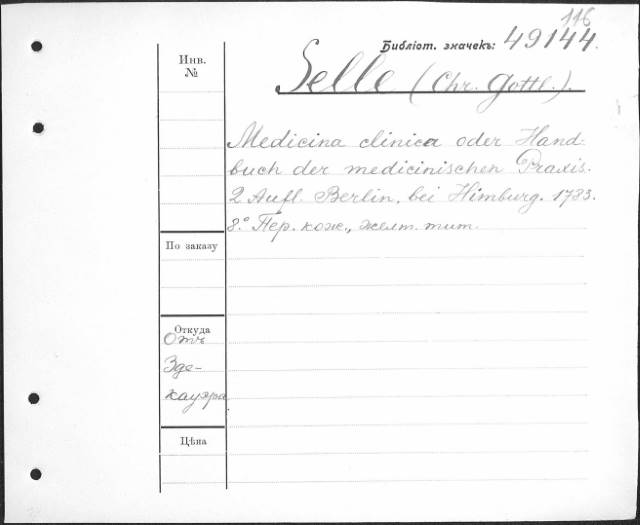 116
Библіот. значекъ: 49144.
Инв.
№
Selle (Chr. Gottl.).
Medicina clinica oder Hand-
buch der medicinischen Praxis.
2 Aufl. Berlin, bei Himburg. 1783.
8.° Пер. кож., желт. тит.
По заказу
Откуда
Отъ
Зде-
кауэра
Цѣна